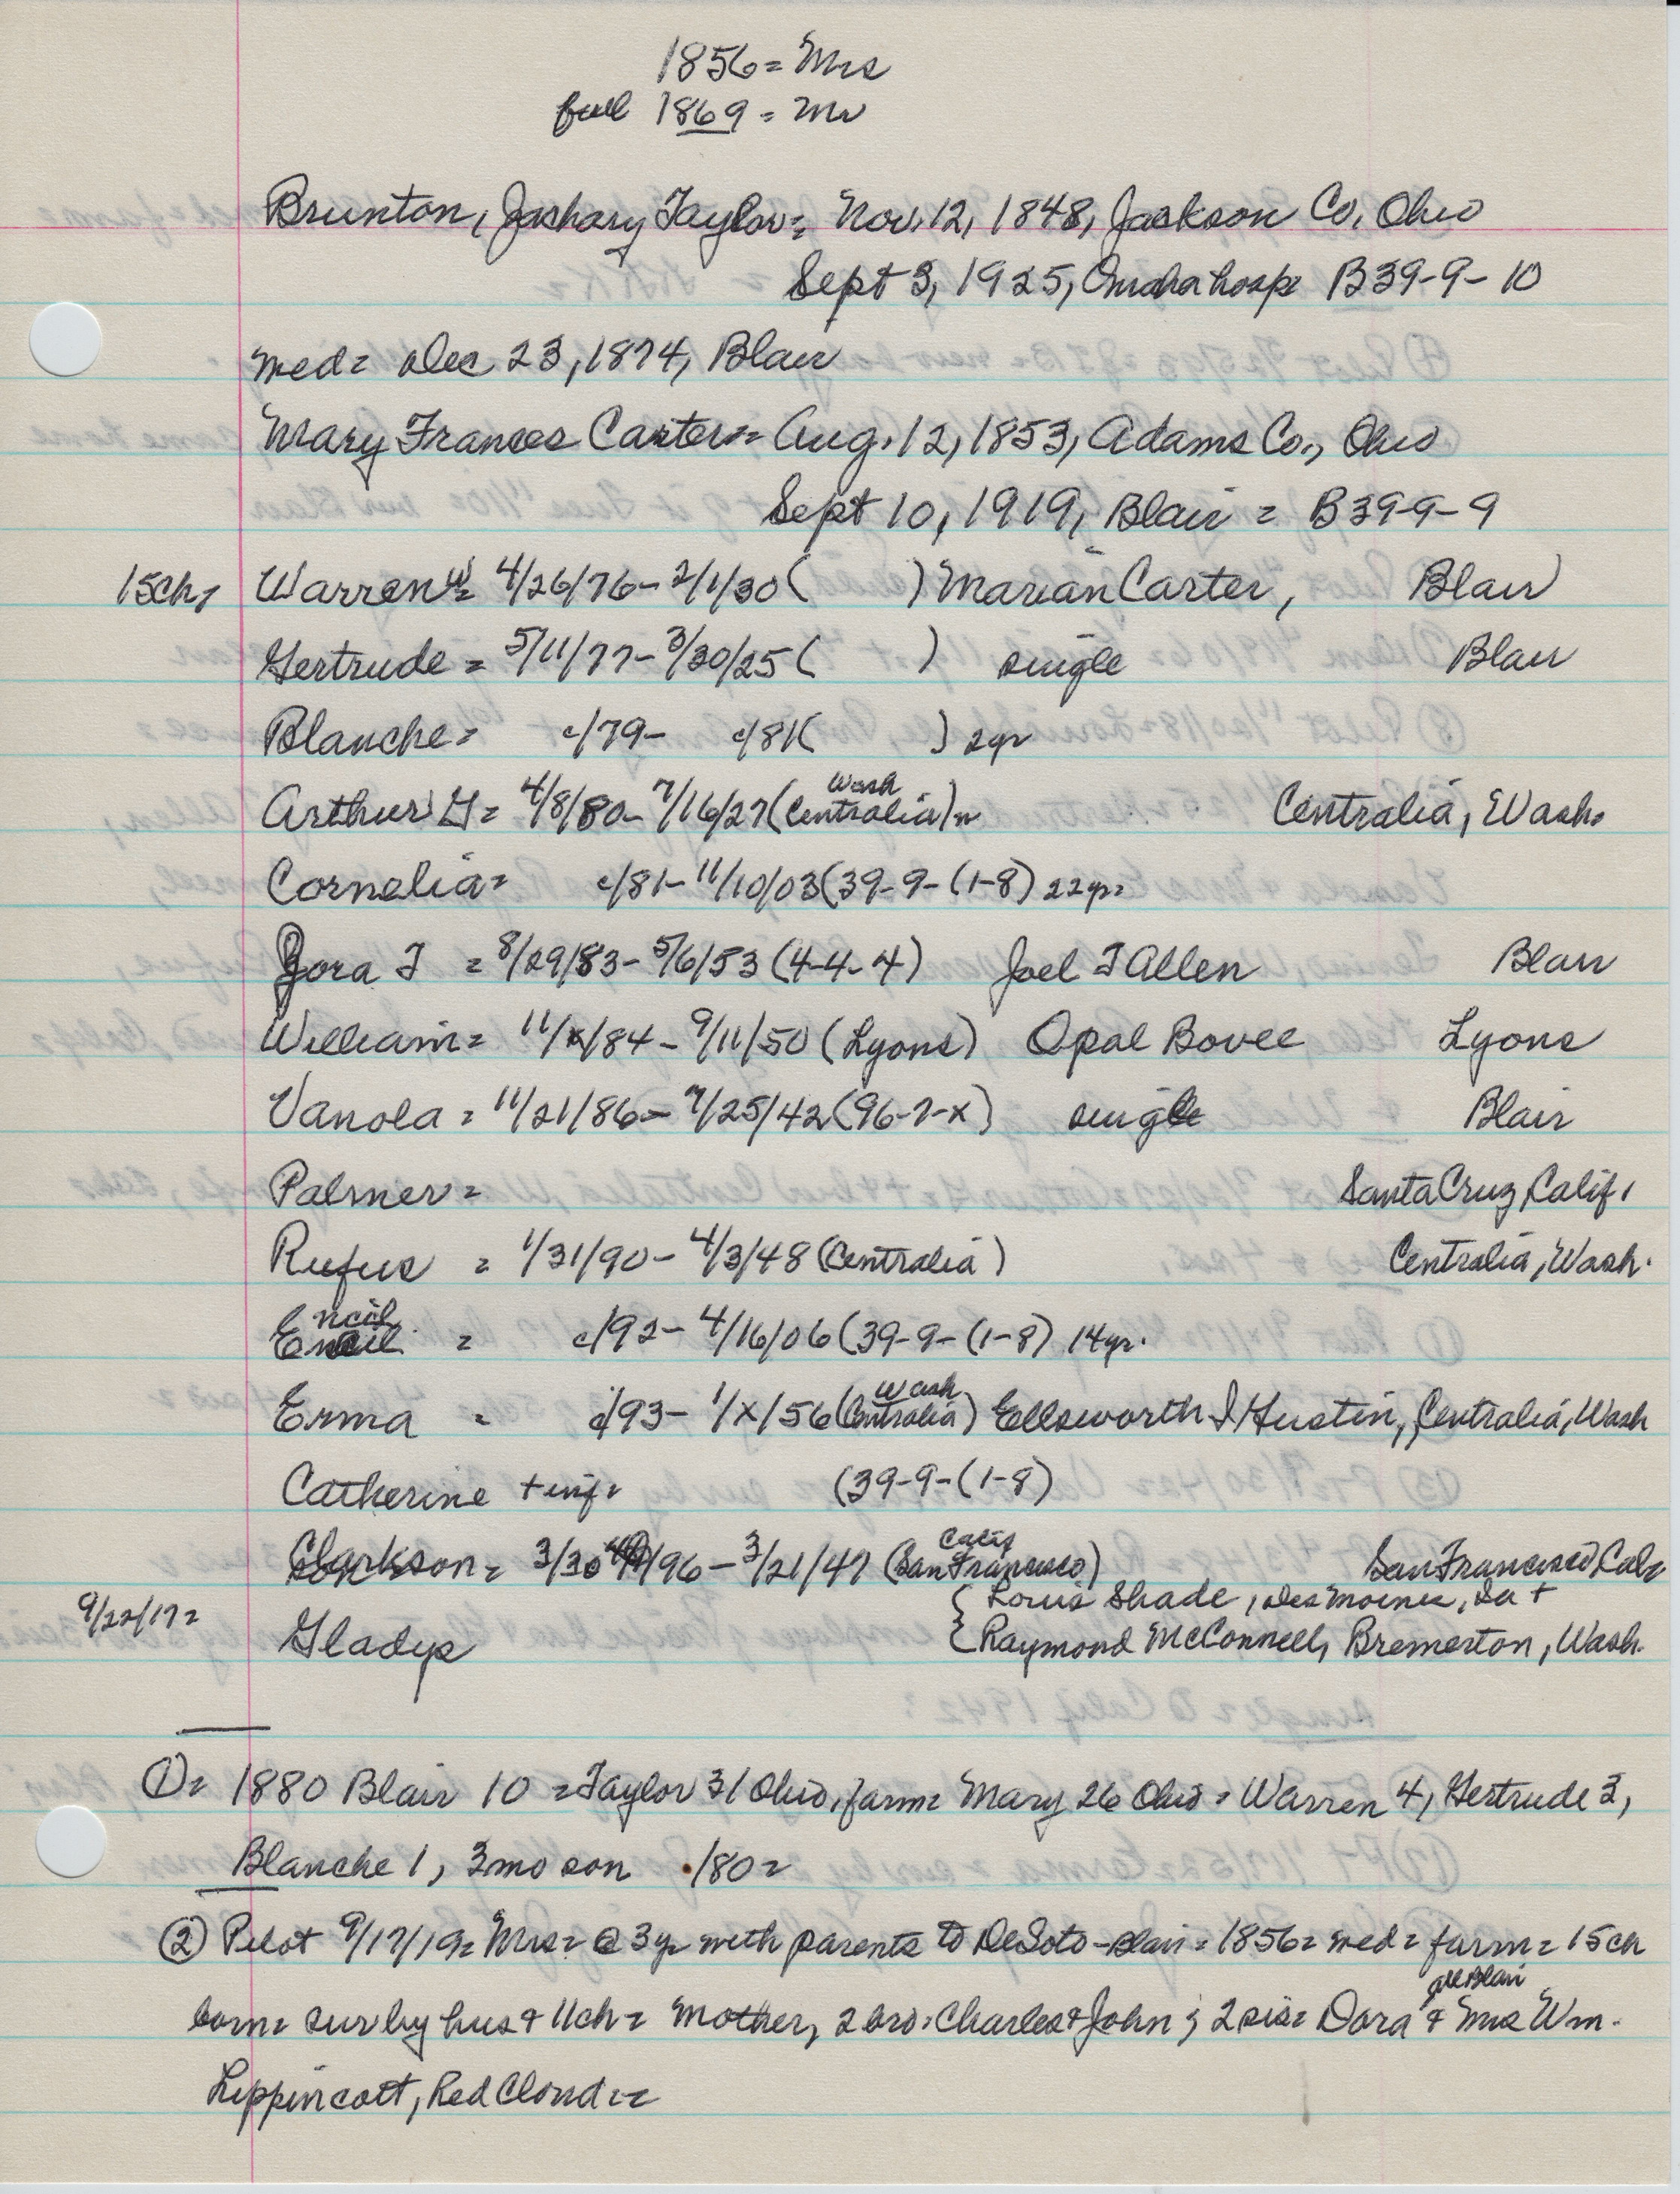 1856 = Mrs
fall 1869 = Mr
Brunton, Zachary Taylor = Nov. 12, 1848, Jackson Co, Ohio
Sept 3, 1925, Omaha hosp = B39-9-10
med = Dec 23, 1874, Blair
Mary Frances Carter = Aug. 12, 1853, Adams Co., Ohio
Sept 10, 1919, Blair = B39-9-9
15ch, Warren W = 4/26/76 - 2/1/30 ( ) Marian Carter, Blair
Gertrude = 5/11/77 - 3/30/25 ( ) single Blair
Blanche = c/79 - c/81 ( ) 2yr
Wash
Arthur G = 4/8/80 - 7/16/27 (Centralia) Centralia, Wash.
Cornelia = c/81 - 11/10/03 (39-9-(1-8) 22yr =
Zora I = 8/29/83 - 5/6/53 (4-4-4) Joel T Allen Blair
William = 11/x/84 - 9/11/50 (Lyons) Opal Bovee Lyons
Vanola = 11/21/86 - 9/25/42 (96-7-x) single Blair
Palmer = Santa Cruz, Calif,
Rufus = 1/31/90 - 4/3/48 (Centralia) Centralia, Wash.
Encil = c/92 - 4/16/06 (39-9-(1-8) 14yr.
Wash
Erma = c/93 - 1/x/56 (Centralia) Ellsworth I Hustin, Centralia, Wash
Catherine + inf = (39-9-(1-8)
Calif
Clarkson = 3/30/96 - 3/21/47 (San Francisco) San Francisco Calif
{ Louis Shade, Des Moines, Ia +
9/22/17 = Gladys { Raymond McConnell, Bremerton, Wash.
① = 1880 Blair 10 = Taylor 31 Ohio, farm = Mary 26 Ohio = Warren 4, Gertrude 3,
Blanche 1, 3mo son /80 =
② Pilot 9/17/19 = Mrs = @ 3yr with parents to DeSoto - Blair = 1856 = med = farm = 15ch
all Blair
born = sur by hus + 11ch = Mother, 2 bro = Charles + John ; 2 sis = Dora + Mrs Wm.
Lippincott, Red Cloud =